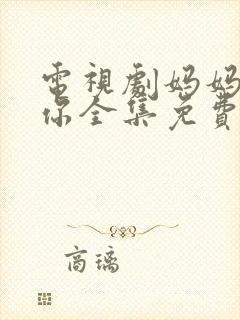 電視劇妈妈
你全集免費
商璃